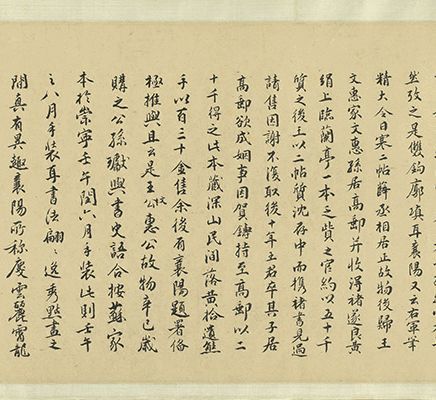 然攷之是雙鈎廓填耳襄陽又云右軍筆
精大令日寒二帖薛丞相居正故物後歸王
文惠家文惠孫居高郵并收得褚遂良黃
絹上臨蘭亭一本乏貲之官約以五十千
質之後王以二帖質沈存中而攜褚書見過
請售因謝不復取後十年王君卒其子居
高郵欲成姻事因賀鑄持至高郵以二
十千得之此本藏深山民間落黃拾遺熊
手以百三十金售余後有襄陽題署俻
極推與且云是王文惠公故物辛巳歲
購之公孫瓛與書史語合按蘇家
本於崇寧壬午閏六月手裝此則壬午
之八月手裝耳書法翩〻逸秀點畫之
間真有異趣襄陽所稱慶雲麗霄龍